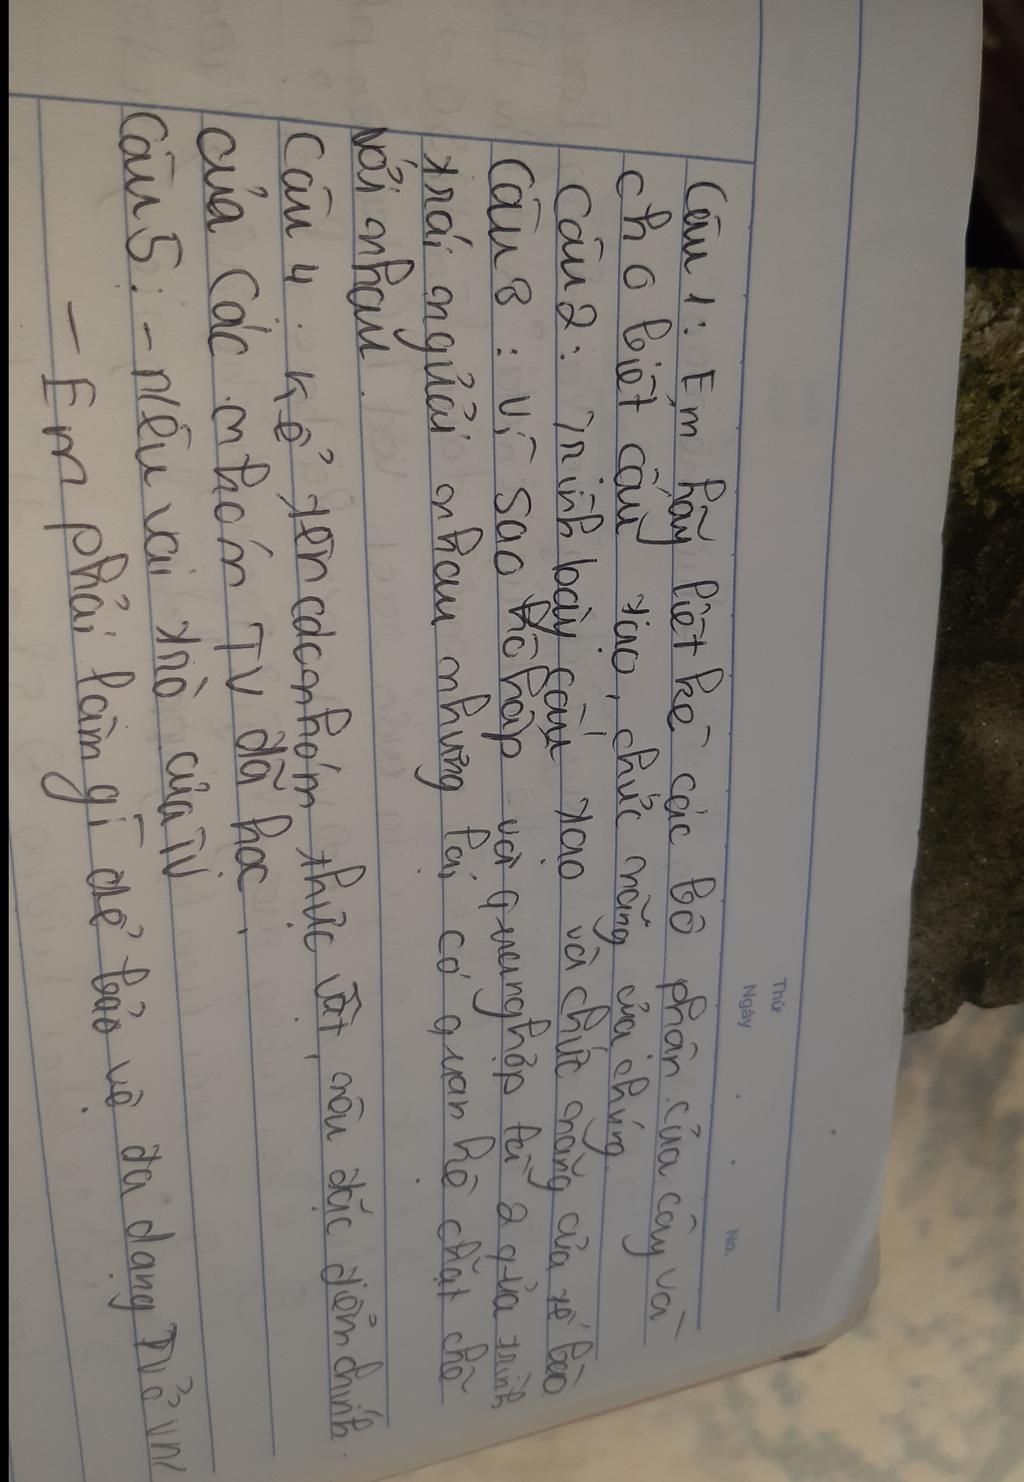 Thứ
Ngày . . No.
Câu 1: Em hãy liệt kê các bộ phận của cây và
cho biết cấu tạo, chức năng của chúng.
Câu 2: Trình bày cấu tạo và chức năng của tế bào
Câu 3: Vì sao hô hấp và quang hợp là 2 quá trình
trái ngược nhau nhưng lại có quan hệ chặt chẽ
với nhau.
Câu 4: Kể tên các nhóm thực vật, nêu đặc điểm chính
của các nhóm TV đã học.
Câu 5: - Nêu vai trò của TV
- Em phải làm gì để bảo vệ đa dạng TV ở VN